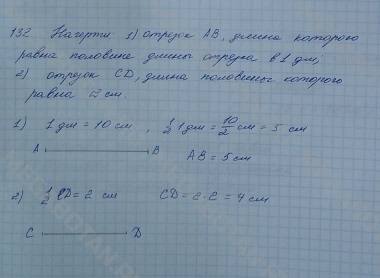 132 Начерти 1) отрезок AB, длина которого
равна половине длины отрезка в 1 дм;
2) отрезок CD, длина половины которого
равна 2 см.
1) 1 дм = 10 см, 1/2 1 дм = 10/2 см = 5 см
A B
AB = 5 см
2) 1/2 CD = 2 см CD = 2 · 2 = 4 см
C D